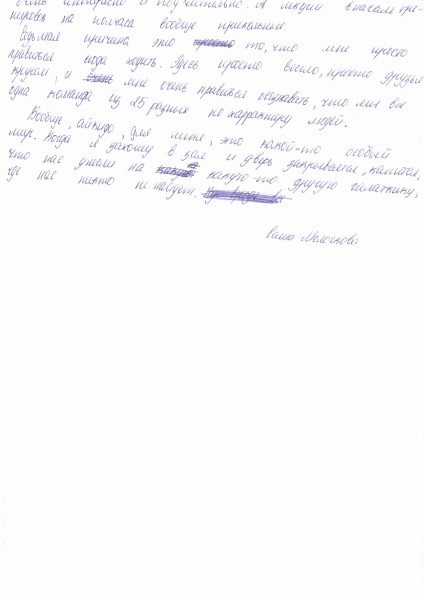 очень интересно и поучительно. А лекции вначале тре-
нировок на полчаса вообще прикольные.
Седьмая причина это просто то, что мне просто
нравится сюда ходить. Здесь просто весело, просто друзья
кругом, и очень мне очень нравится осознавать, что мы все
одна команда из 25 разных по харрактиру людей.
Вообще, айкидо, для меня, это какой-то особый
мир. Когда я захожу в зал и дверь закрывается, кажется,
что нас унесли на какую-то другую галактику,
где нас никто не найдет.
Ваша Молоскова